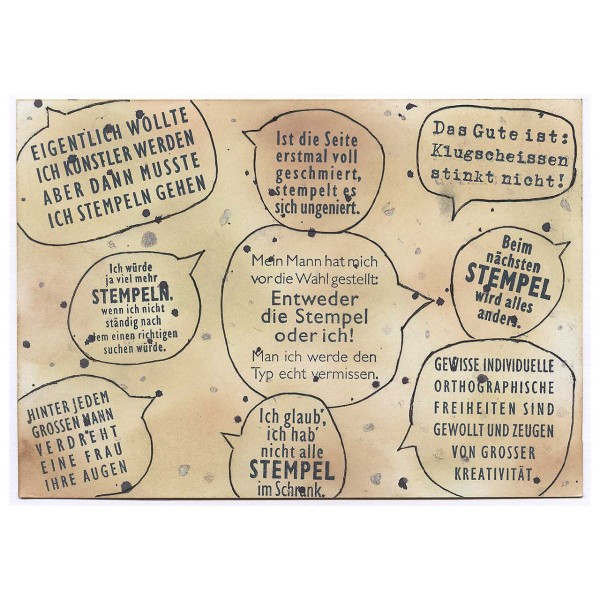 EIGENTLICH WOLLTE
ICH KÜNSTLER WERDEN
ABER DANN MUSSTE
ICH STEMPELN GEHEN
Ist die Seite
erstmal voll
geschmiert,
stempelt es
sich ungeniert.
Das Gute ist:
Klugscheissen
stinkt nicht!
Ich würde
ja viel mehr
STEMPELN,
wenn ich nicht
ständig nach
dem einen richtigen
suchen würde.
Mein Mann hat mich
vor die Wahl gestellt:
Entweder
die Stempel
oder ich!
Man ich werde den
Typ echt vermissen.
Beim
nächsten
STEMPEL
wird alles
anders.
HINTER JEDEM
GROSSEN MANN
VERDREHT
EINE FRAU
IHRE AUGEN
Ich glaub',
ich hab'
nicht alle
STEMPEL
im Schrank.
GEWISSE INDIVIDUELLE
ORTHOGRAPHISCHE
FREIHEITEN SIND
GEWOLLT UND ZEUGEN
VON GROSSER
KREATIVITÄT.